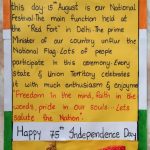 this day 15th August is our National
Festival. The main function held at
the 'Red Fort' in Delhi. The prime
Minister of our country unfur the
National Flag. Lots of people
participate in this ceremony. Every
State & Union Territory celebrates
it with much enthusiasm & enjoyment
"Freedom in the mind, faith in the
words, pride in our souls. Lets
salute the Nation".
Happy 75th Independence Day